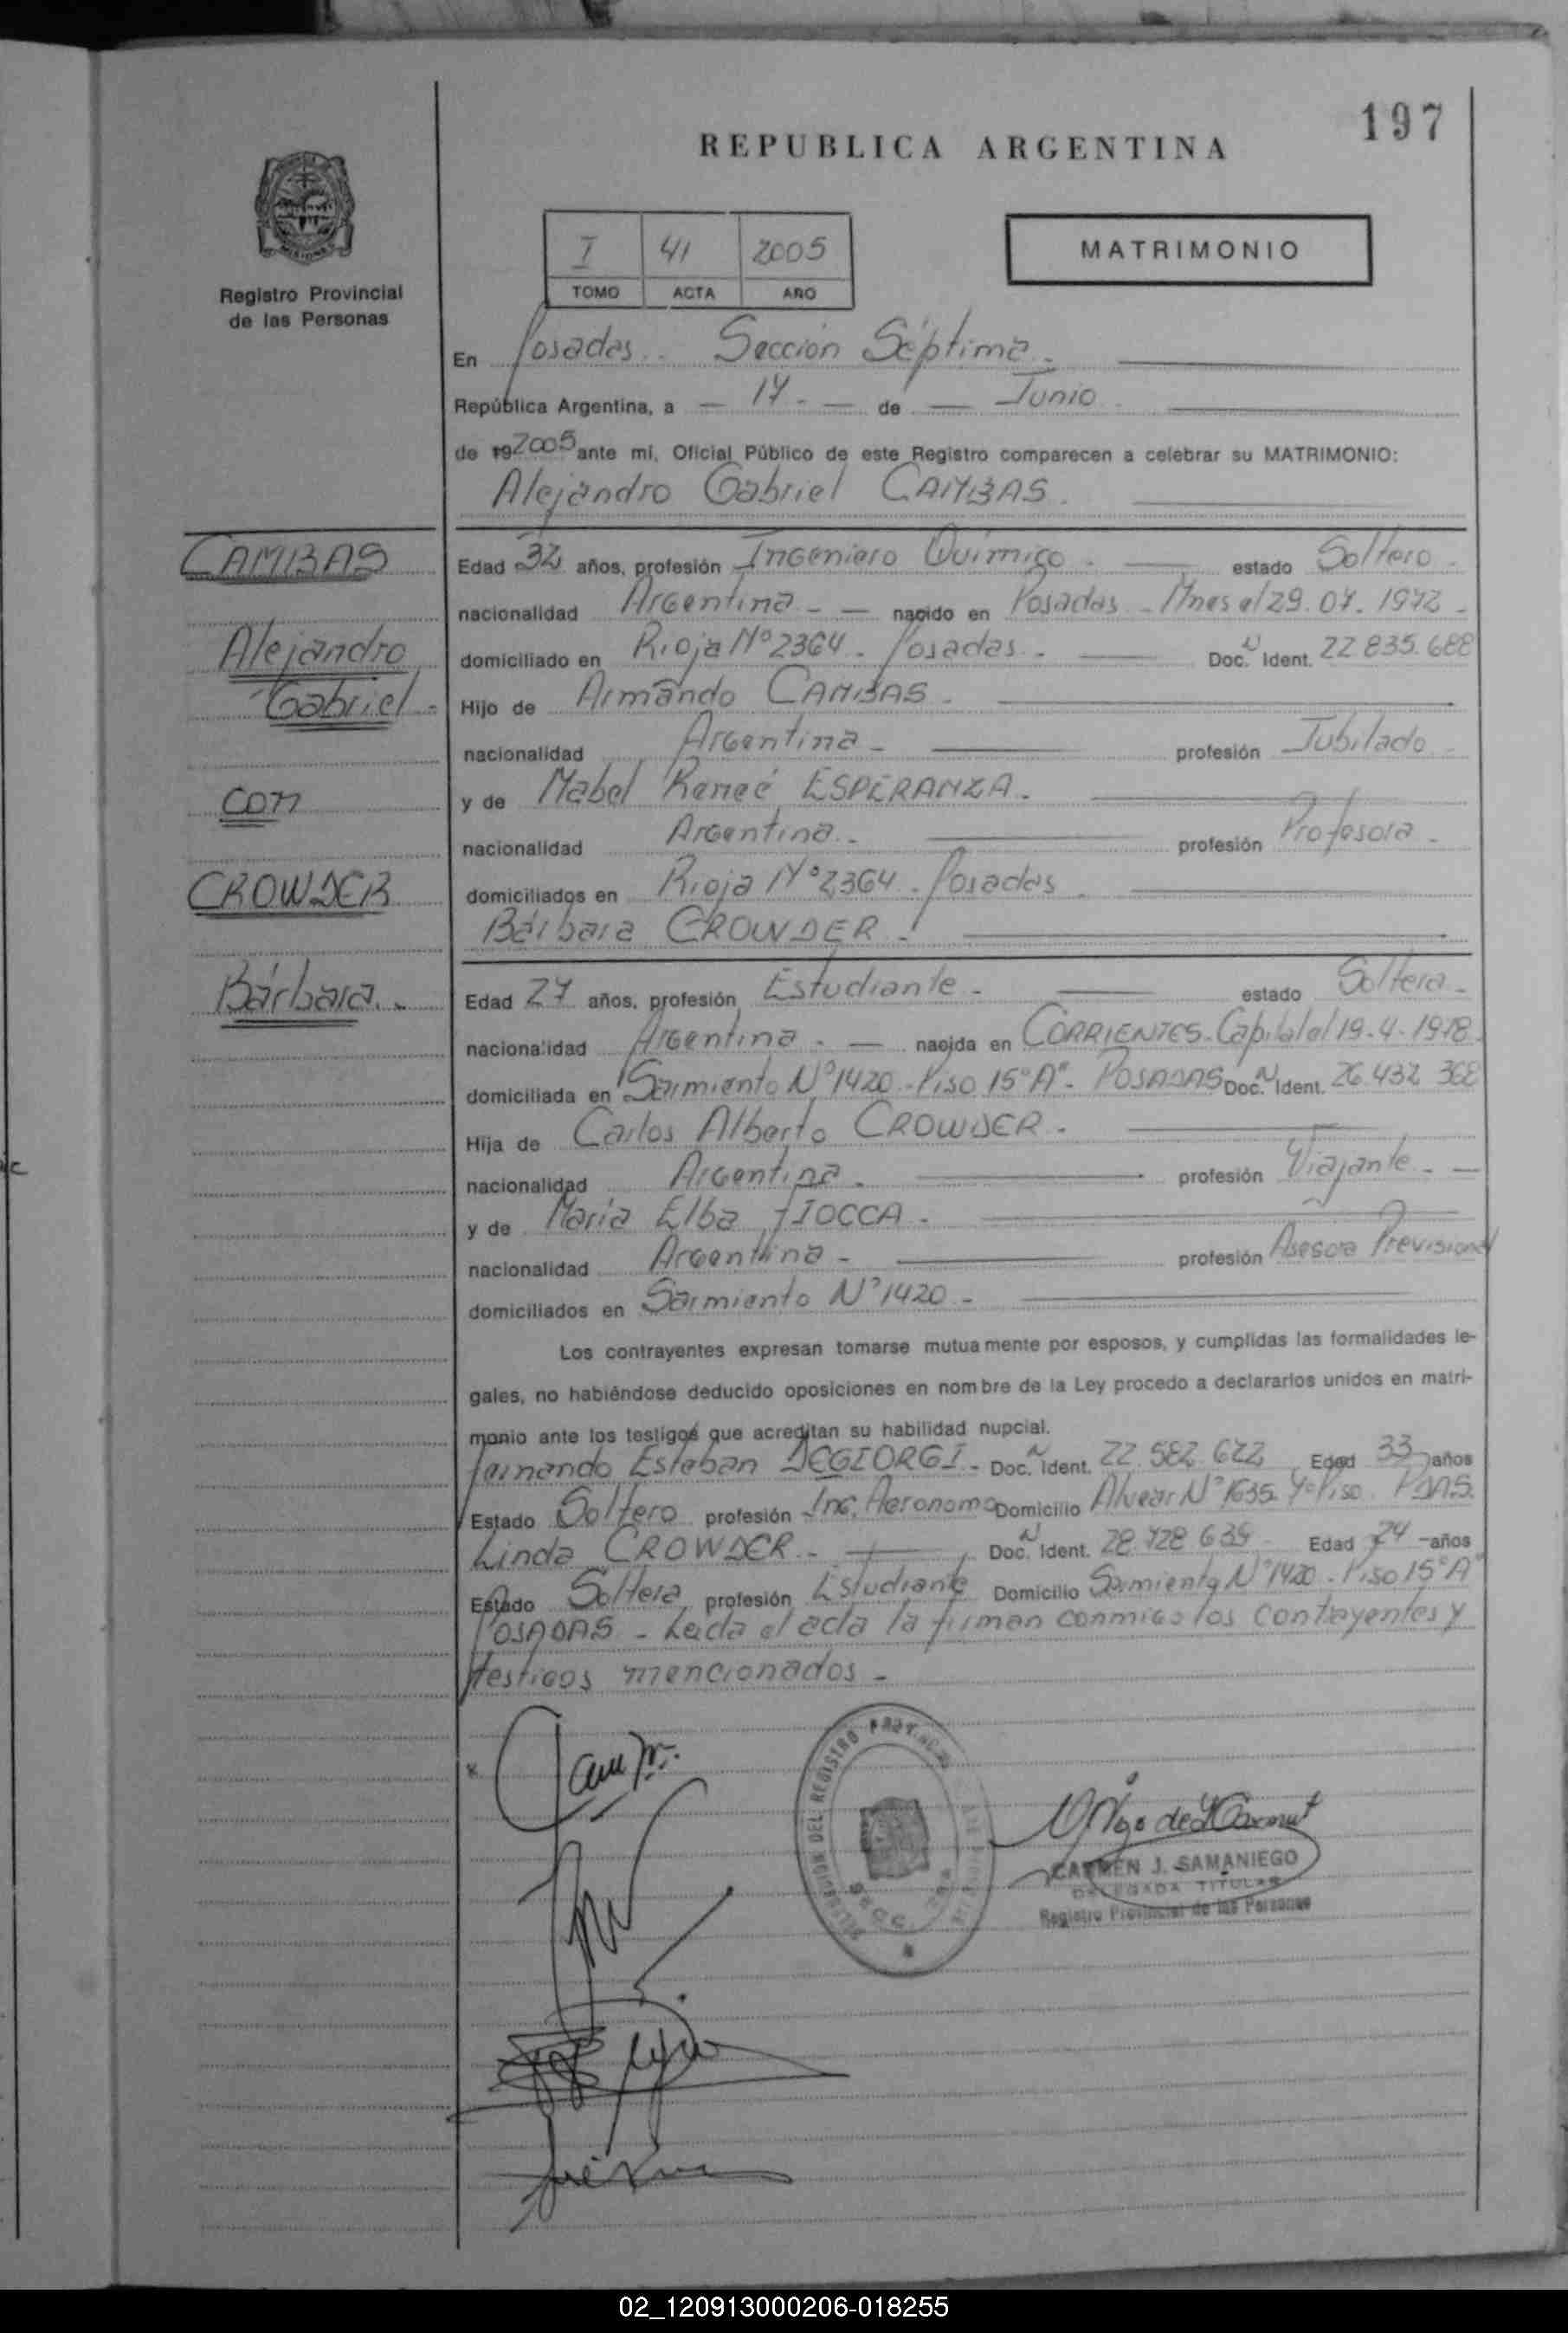 197
REPUBLICA ARGENTINA
Registro Provincial
de las Personas
I 41 2005
TOMO ACTA AÑO
MATRIMONIO
En Posadas.. Sección Séptima.
República Argentina, a — 17. — de — Junio.
de 192005 ante mi, Oficial Público de este Registro comparecen a celebrar su MATRIMONIO:
Alejandro Gabriel CAMBAS.
CAMBAS
Alejandro
Gabriel.
con
CROWDER
Bárbara.
Edad 32 años, profesión Ingeniero Químico. — estado Soltero.
nacionalidad Argentina. — nacido en Posadas - Mnes el 29.07.1972.
domiciliado en Rioja Nº 2364. Posadas. — Doc. N Ident. 22 835.688
Hijo de Armando CAMBAS.
nacionalidad Argentina. profesión Jubilado
y de Mabel Reneé ESPERANZA.
nacionalidad Argentina. profesión Profesora.
domiciliados en Rioja Nº 2364. Posadas
Bárbara CROWDER.
Edad 27 años, profesión Estudiante. estado Soltera.
nacionalidad Argentina. — nacida en CORRIENTES. Capital el 19.4.1978.
domiciliada en Sarmiento Nº 1420. Piso 15º "A". POSADAS Doc. N Ident. 26 432 368
Hija de Carlos Alberto CROWDER.
nacionalidad Argentina. profesión Viajante. —
y de María Elba FIOCCA.
nacionalidad Argentina. profesión Asesora Previsional
domiciliados en Sarmiento Nº 1420.
Los contrayentes expresan tomarse mutuamente por esposos, y cumplidas las formalidades le-
gales, no habiéndose deducido oposiciones en nombre de la Ley procedo a declararlos unidos en matri-
monio ante los testigos que acreditan su habilidad nupcial.
Fernando Esteban DEGIORGI. Doc. N Ident. 22.582.622 Edad 33 años
Estado Soltero profesión Ing. Agronomo Domicilio Alvear Nº 1635. Piso. PDAS.
Linda CROWDER. Doc. N Ident. 28.728 639 Edad 24 años
Estado Soltera profesión Estudiante Domicilio Sarmiento Nº 1420. Piso 15º "A"
POSADAS - Leida el acta la firman conmigo los contrayentes y
testigos mencionados.
REGISTRO
CARMEN J. SAMANIEGO
DELEGADA TITULAR
Registro Provincial de las Personas
02_120913000206-018255